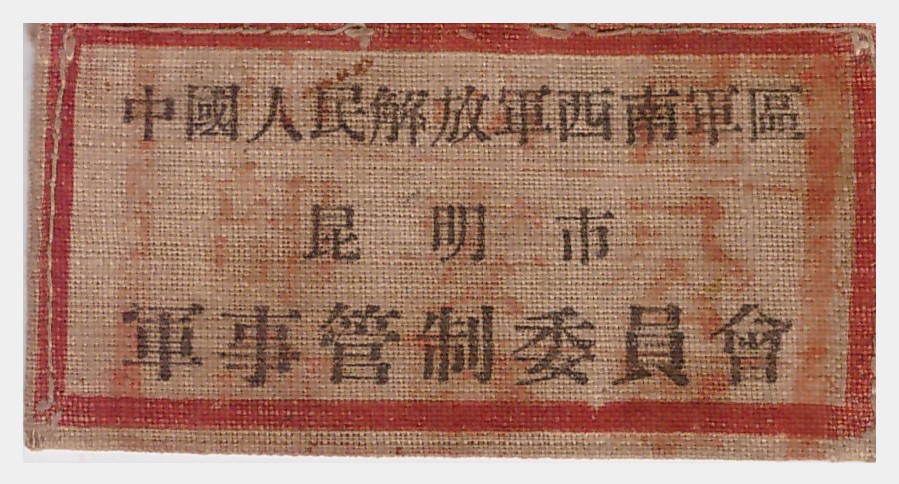 中國人民解放軍西南軍區
昆明市
軍事管制委員會